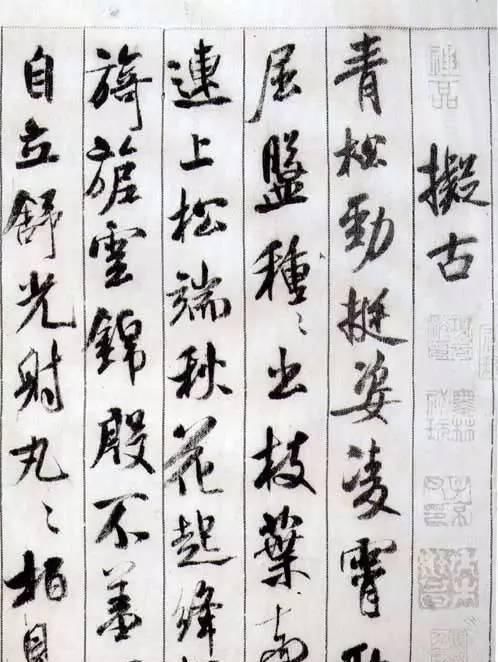 擬古
青松勁挺姿凌霄
屈盤種〻出枝葉
連上松端秋花起絳
旖旎雲錦殷不羞
自立舒光射丸〻柏見